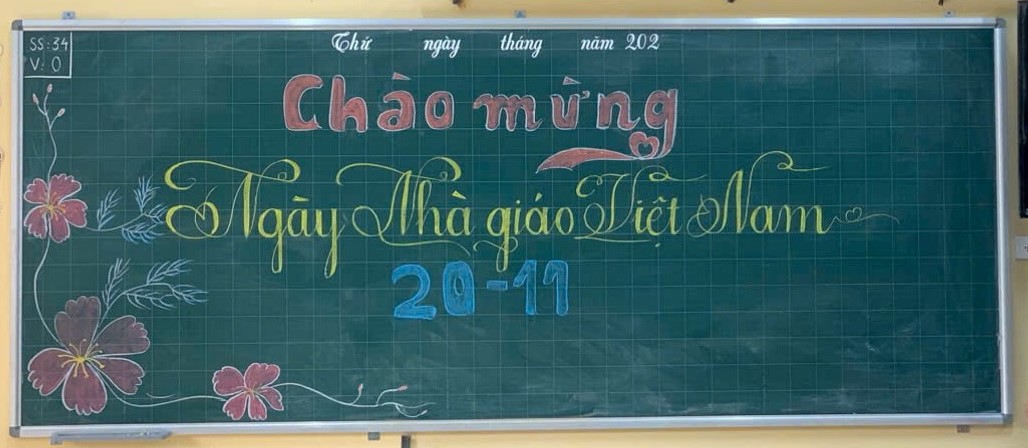 SS: 34
V: 0
Thứ ngày tháng năm 202
Chào mừng
Ngày Nhà giáo Việt Nam
20-11